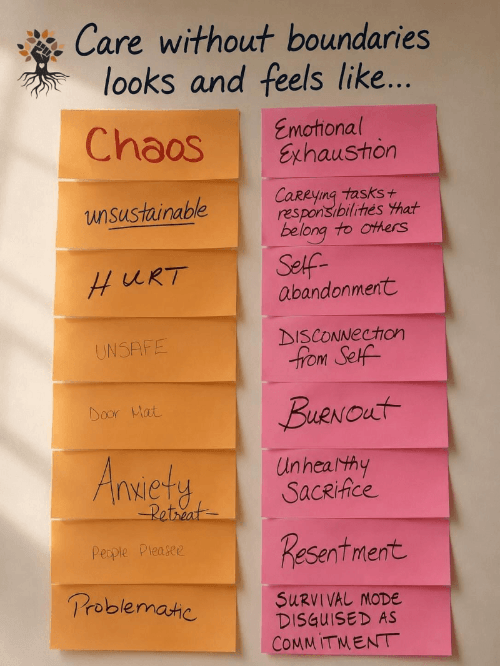 Care without boundaries
looks and feels like...
Chaos
unsustainable
HURT
UNSAFE
Door Mat
Anxiety
Retreat
People Pleaser
Problematic
Emotional
Exhaustion
Carrying tasks +
responsibilities that
belong to others
Self-
abandonment
Disconnection
from Self
Burnout
Unhealthy
Sacrifice
Resentment
SURVIVAL MODE
DISGUISED AS
COMMITMENT